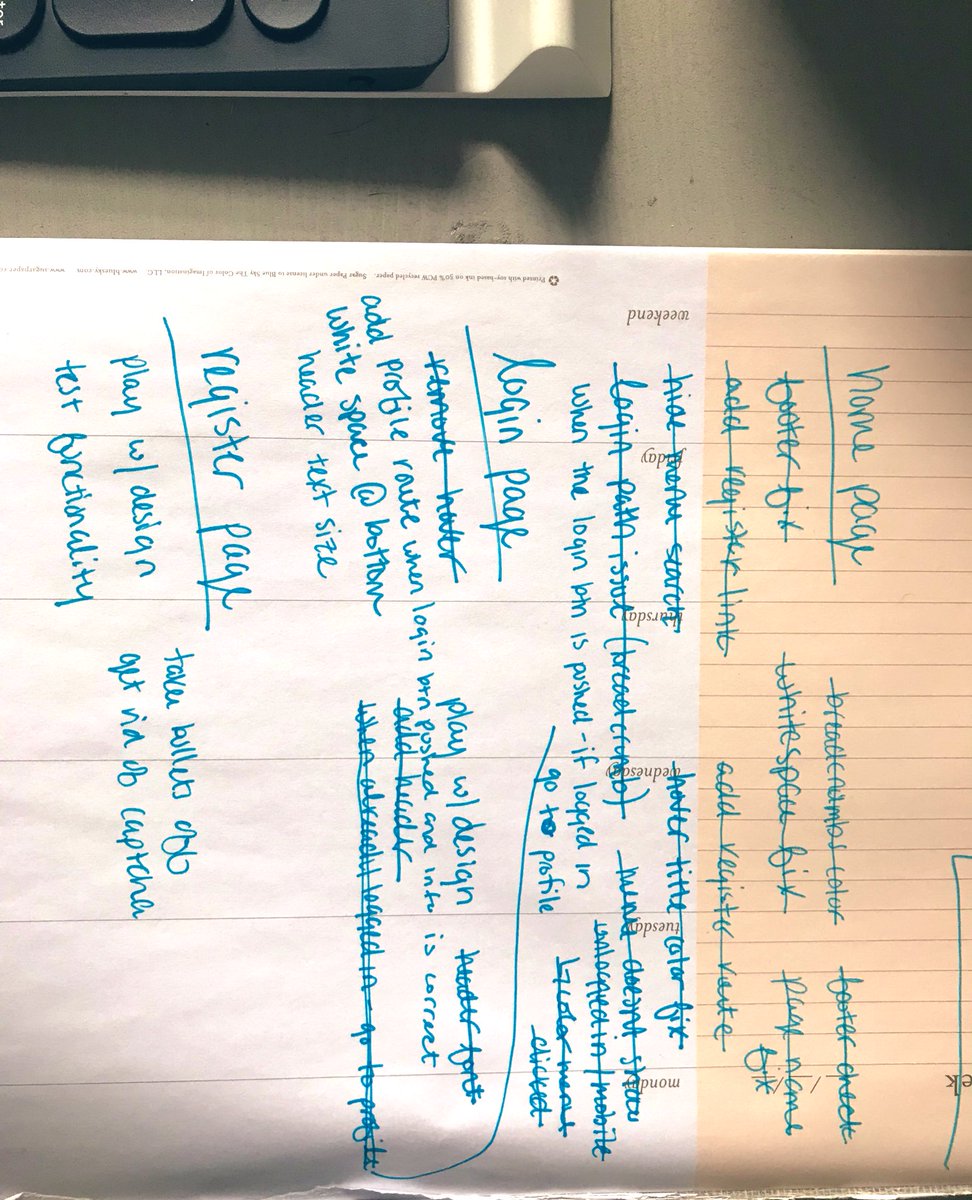 home page
footer fix
whitespace fix
breadcrumbs color
footer check
page name
fix
add register link
add register route
hide menu search
hover title color fix
login path issue (breadcrumb)
menu doesnt show
when the login btn is pushed - if logged in
go to profile
unlogged in / mobile
color menu
clicked
login page
remove hover
play w/ design
header font
add profile route when login btn pushed and info is correct
add header
white space @ bottom
when already logged in - go to profile
header text size
register page
play w/ design
taken bullets off
test functionality
get rid of captcha
weekend
friday
thursday
wednesday
tuesday
monday
Printed with soy-based ink on 50% PCW recycled paper. Sugar Paper under license to Blue Sky The Color of Imagination, LLC www.bluesky.com